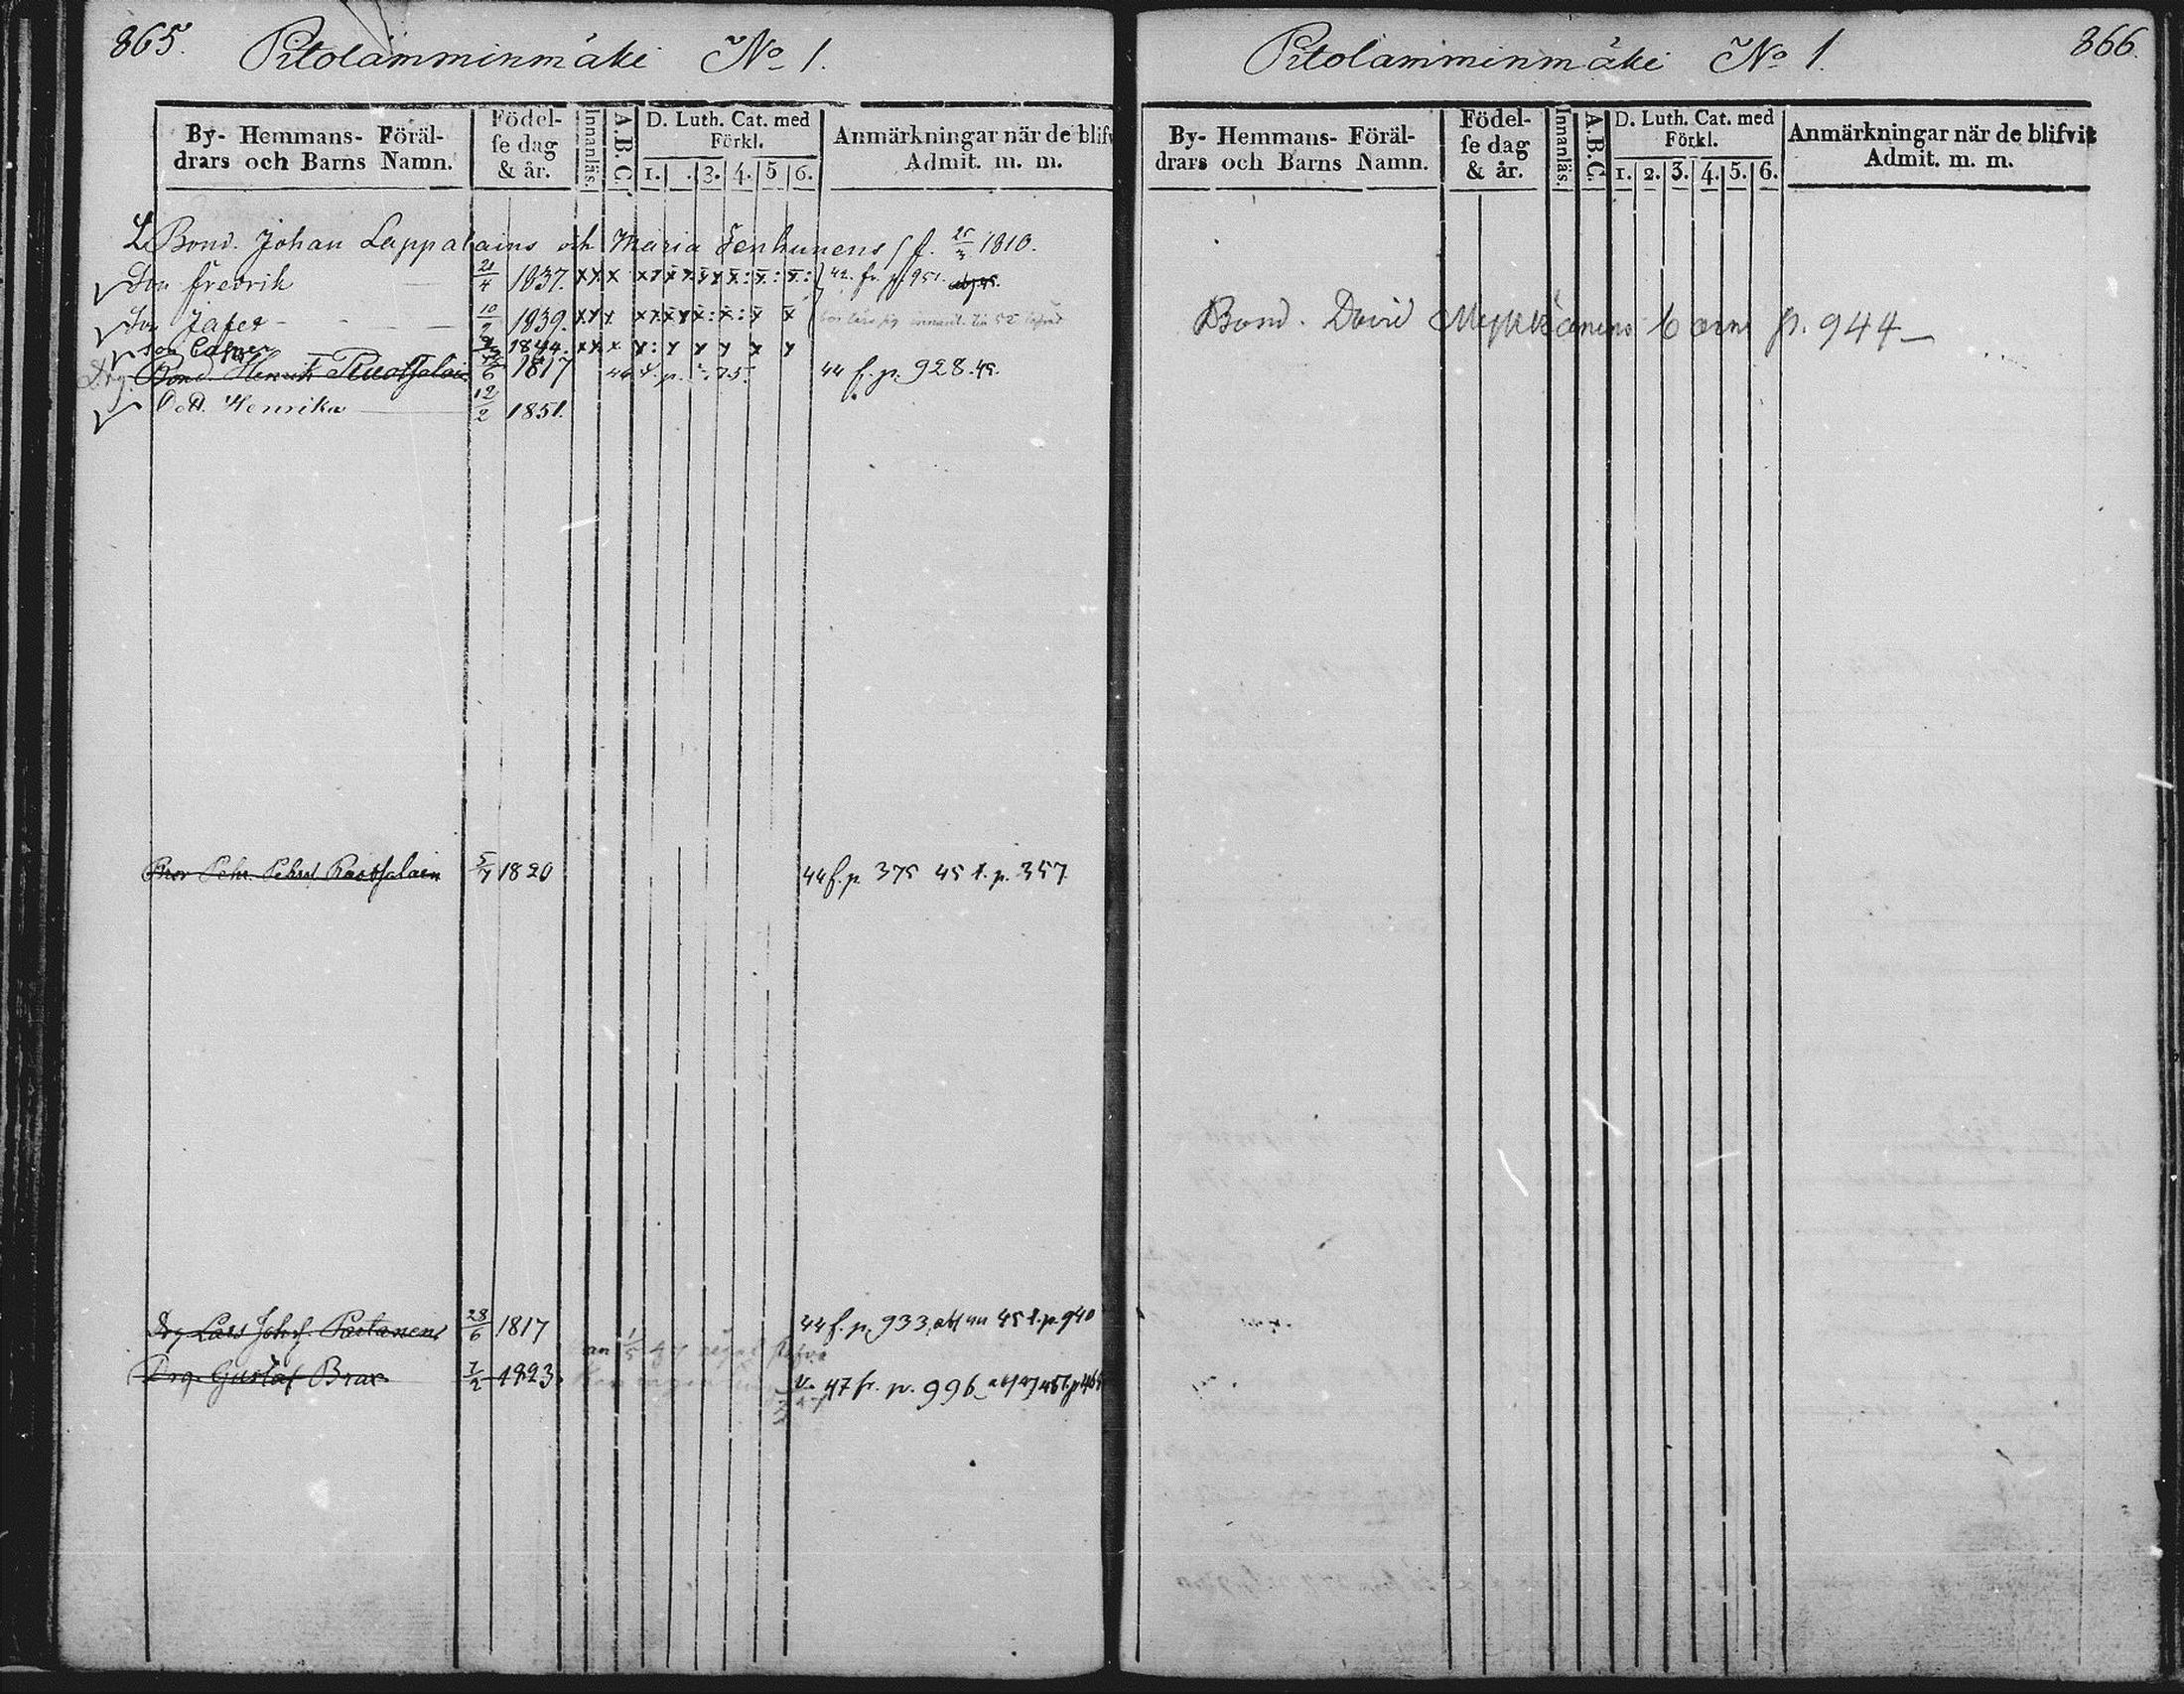 865. Pitolamminmäki No 1.
By- Hemmans- Föräl-
drars och Barns Namn.
Födel-
se dag
& år.
Innanläs.
A.B.C.
D. Luth. Cat. med
Förkl.
1. . 3. 4. 5 6.
Anmärkningar när de blifv
Admit. m. m.
Bond. Johan Lappalains och Maria Tenhunens f. 25/3 1810.
Son Fredrik 21/4 1837. x x x 42. fr. p. 951.
Son Jafet 10/2 1839. x x x
Son Casper 1844. x x x
Drg Bond. Henrik Ruotsalain /6 1817 44 f. p. 928. 45.
Dott. Henrika 12/2 1851.
Bror Pehr Pehrs. Ruotsalain 5/7 1820 44 f. p. 375 45 t. p. 357
Drg Lars Johs. Partanens 28/6 1817 44 f. p. 933, 45 t. p. 940
Drg. Gustaf Brax 7/2 1823. 47 fr. p. 996
Pitolamminmäki No 1. 866.
By- Hemmans- Föräl-
drars och Barns Namn.
Födel-
se dag
& år.
Innanläs.
A.B.C.
D. Luth. Cat. med
Förkl.
1. 2. 3. 4. 5. 6.
Anmärkningar när de blifvit
Admit. m. m.
Bond. David Mykkänens barn p. 944